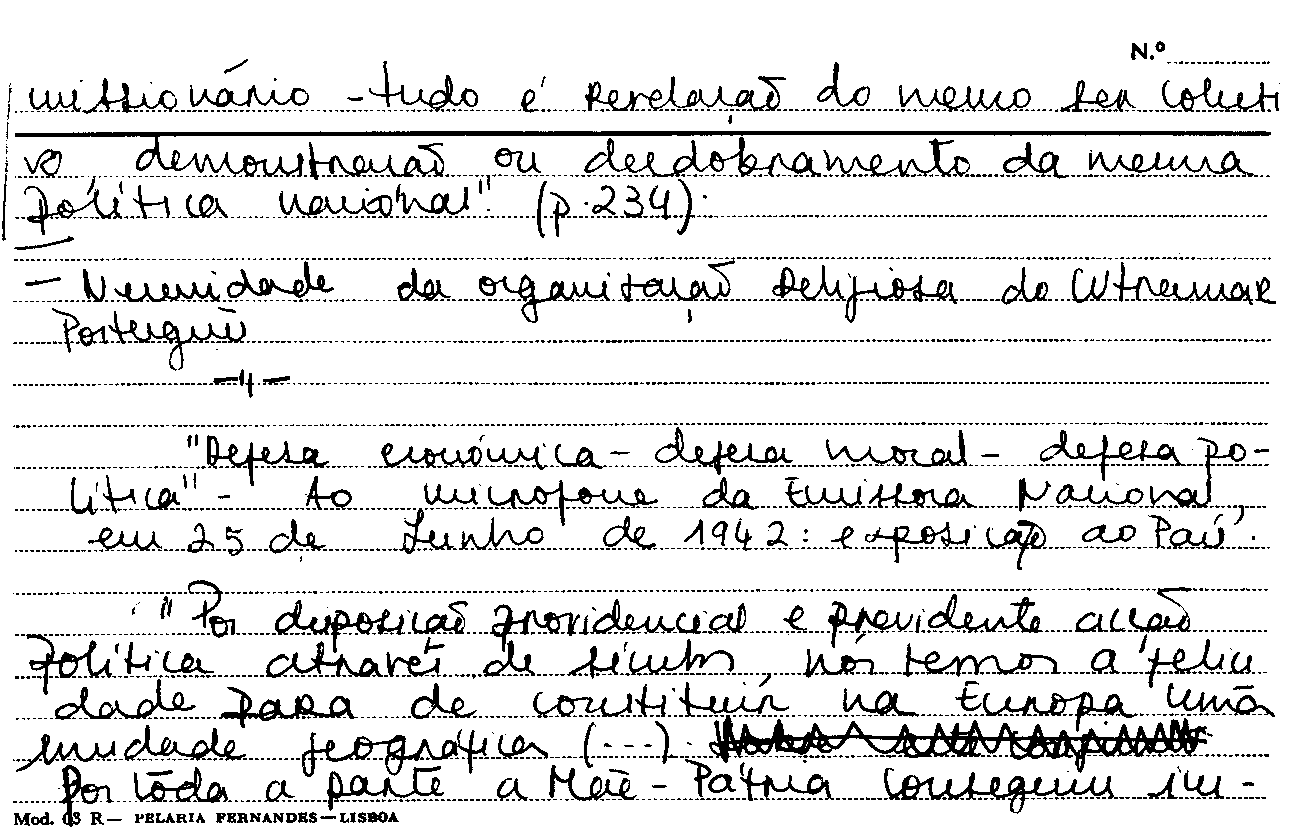 N.º
missionário - tudo é revelação do mesmo ser colecti
vo, demonstração ou desdobramento da mesma
política nacional" (p. 234).
- Necessidade da organização religiosa do Ultramar
Português
—"—
"Defesa económica - defesa moral - defesa po-
lítica" - Ao microfone da Emissora Nacional,
em 25 de Junho de 1942: exposição ao País.
"Por disposição providencial e previdente acção
política através de séculos, nós temos a felici
dade para de constituir na Europa uma
unidade geográfica (...).
Por tôda a parte a Mãe-Pátria conseguiu im-
Mod. 63 R — PELARIA FERNANDES — LISBOA